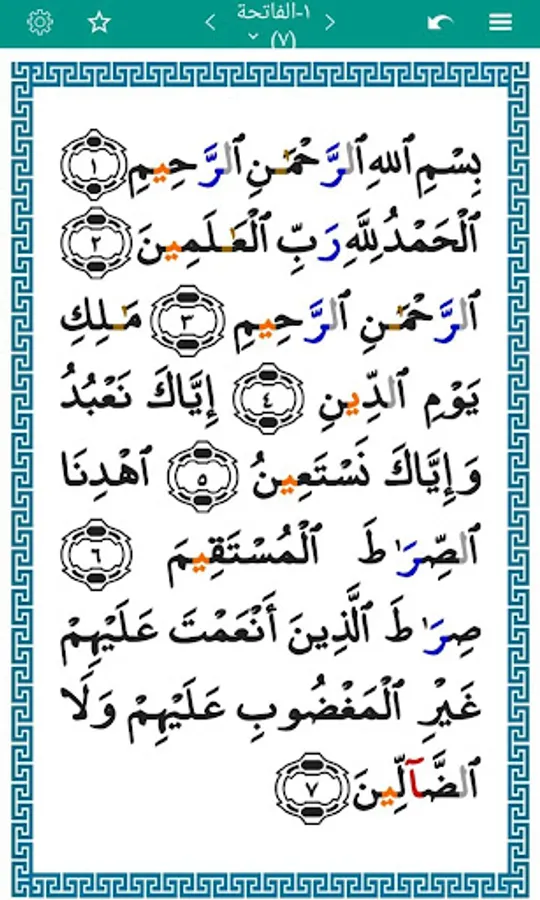 ١-الفاتحة
(٧)
بِسْمِ ٱللهِ ٱلرَّحْمَٰنِ ٱلرَّحِيمِ ١
ٱلْحَمْدُ لِلَّهِ رَبِّ ٱلْعَٰلَمِينَ ٢
ٱلرَّحْمَٰنِ ٱلرَّحِيمِ ٣ مَٰلِكِ
يَوْمِ ٱلدِّينِ ٤ إِيَّاكَ نَعْبُدُ
وَإِيَّاكَ نَسْتَعِينُ ٥ ٱهْدِنَا
ٱلصِّرَٰطَ ٱلْمُسْتَقِيمَ ٦
صِرَٰطَ ٱلَّذِينَ أَنْعَمْتَ عَلَيْهِمْ
غَيْرِ ٱلْمَغْضُوبِ عَلَيْهِمْ وَلَا
ٱلضَّآلِّينَ ٧